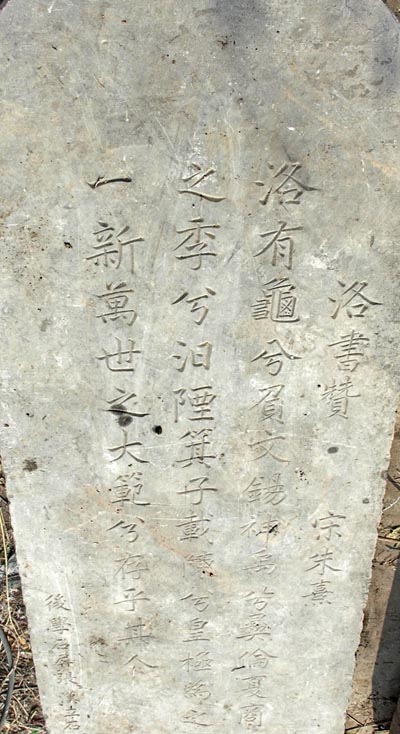 洛書贊 宗朱熹
洛有龜兮負文錫神禹兮彝倫夏商
之季兮汩陻箕子載陳兮皇極之
一新萬世之大範兮存乎其人
後學張立石